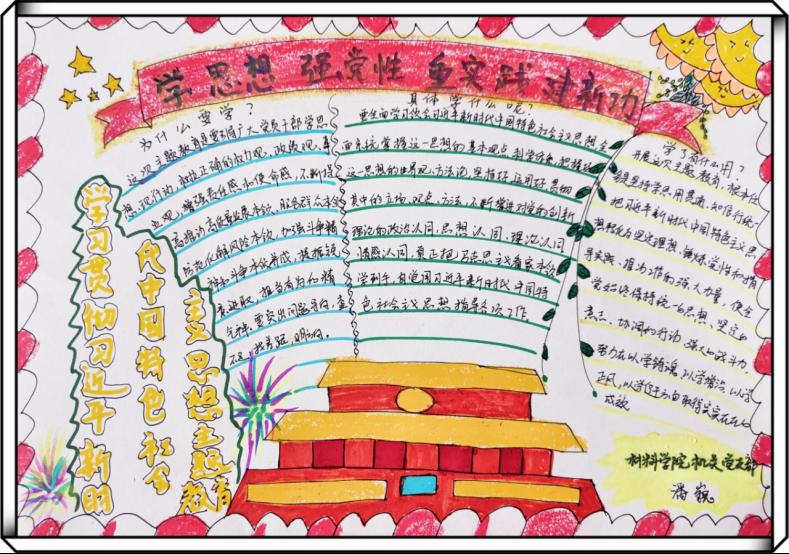 学思想 强党性 重实践 建新功
为什么要学？
这次主题教育是要教育广大党员干部学思
想、见行动，树立正确的权力观、政绩观、事
业观，增强责任感和使命感，不断提
高推动高质量发展本领、服务群众本领
防范化解风险本领，加强斗争精
神和斗争本领养成，提振锐
意进取、担当有为的精
气神。要突出问题导向，查
不足、找差距、明方向。
具体学什么呢？
要全面学习领会习近平新时代中国特色社会主义思想，全
面系统掌握这一思想的基本观点、科学体系，把握好
这一思想的世界观、方法论，坚持好、运用好贯穿
其中的立场、观点、方法，不断增进对党的创新
理论的政治认同、思想认同、理论认同
情感认同，真正把马克思主义看家本领
学到手，自觉用习近平新时代中国特
色社会主义思想指导各项工作。
学了有什么用？
开展这次主题教育，根本任
把习近平新时代中国特色主义思
想转化为坚定理想、锤炼党性和指
导实践、推动工作的强大力量，使全
党始终保持统一的思想、坚定的
意志、协调的行动、强大的战斗力，
努力在以学铸魂、以学增智、以学
正风、以学促干方面取得实实在在的
成效
学习贯彻习近平新时
代中国特色社会
主义思想主题
教育
材料学院机关党支部
潘巍